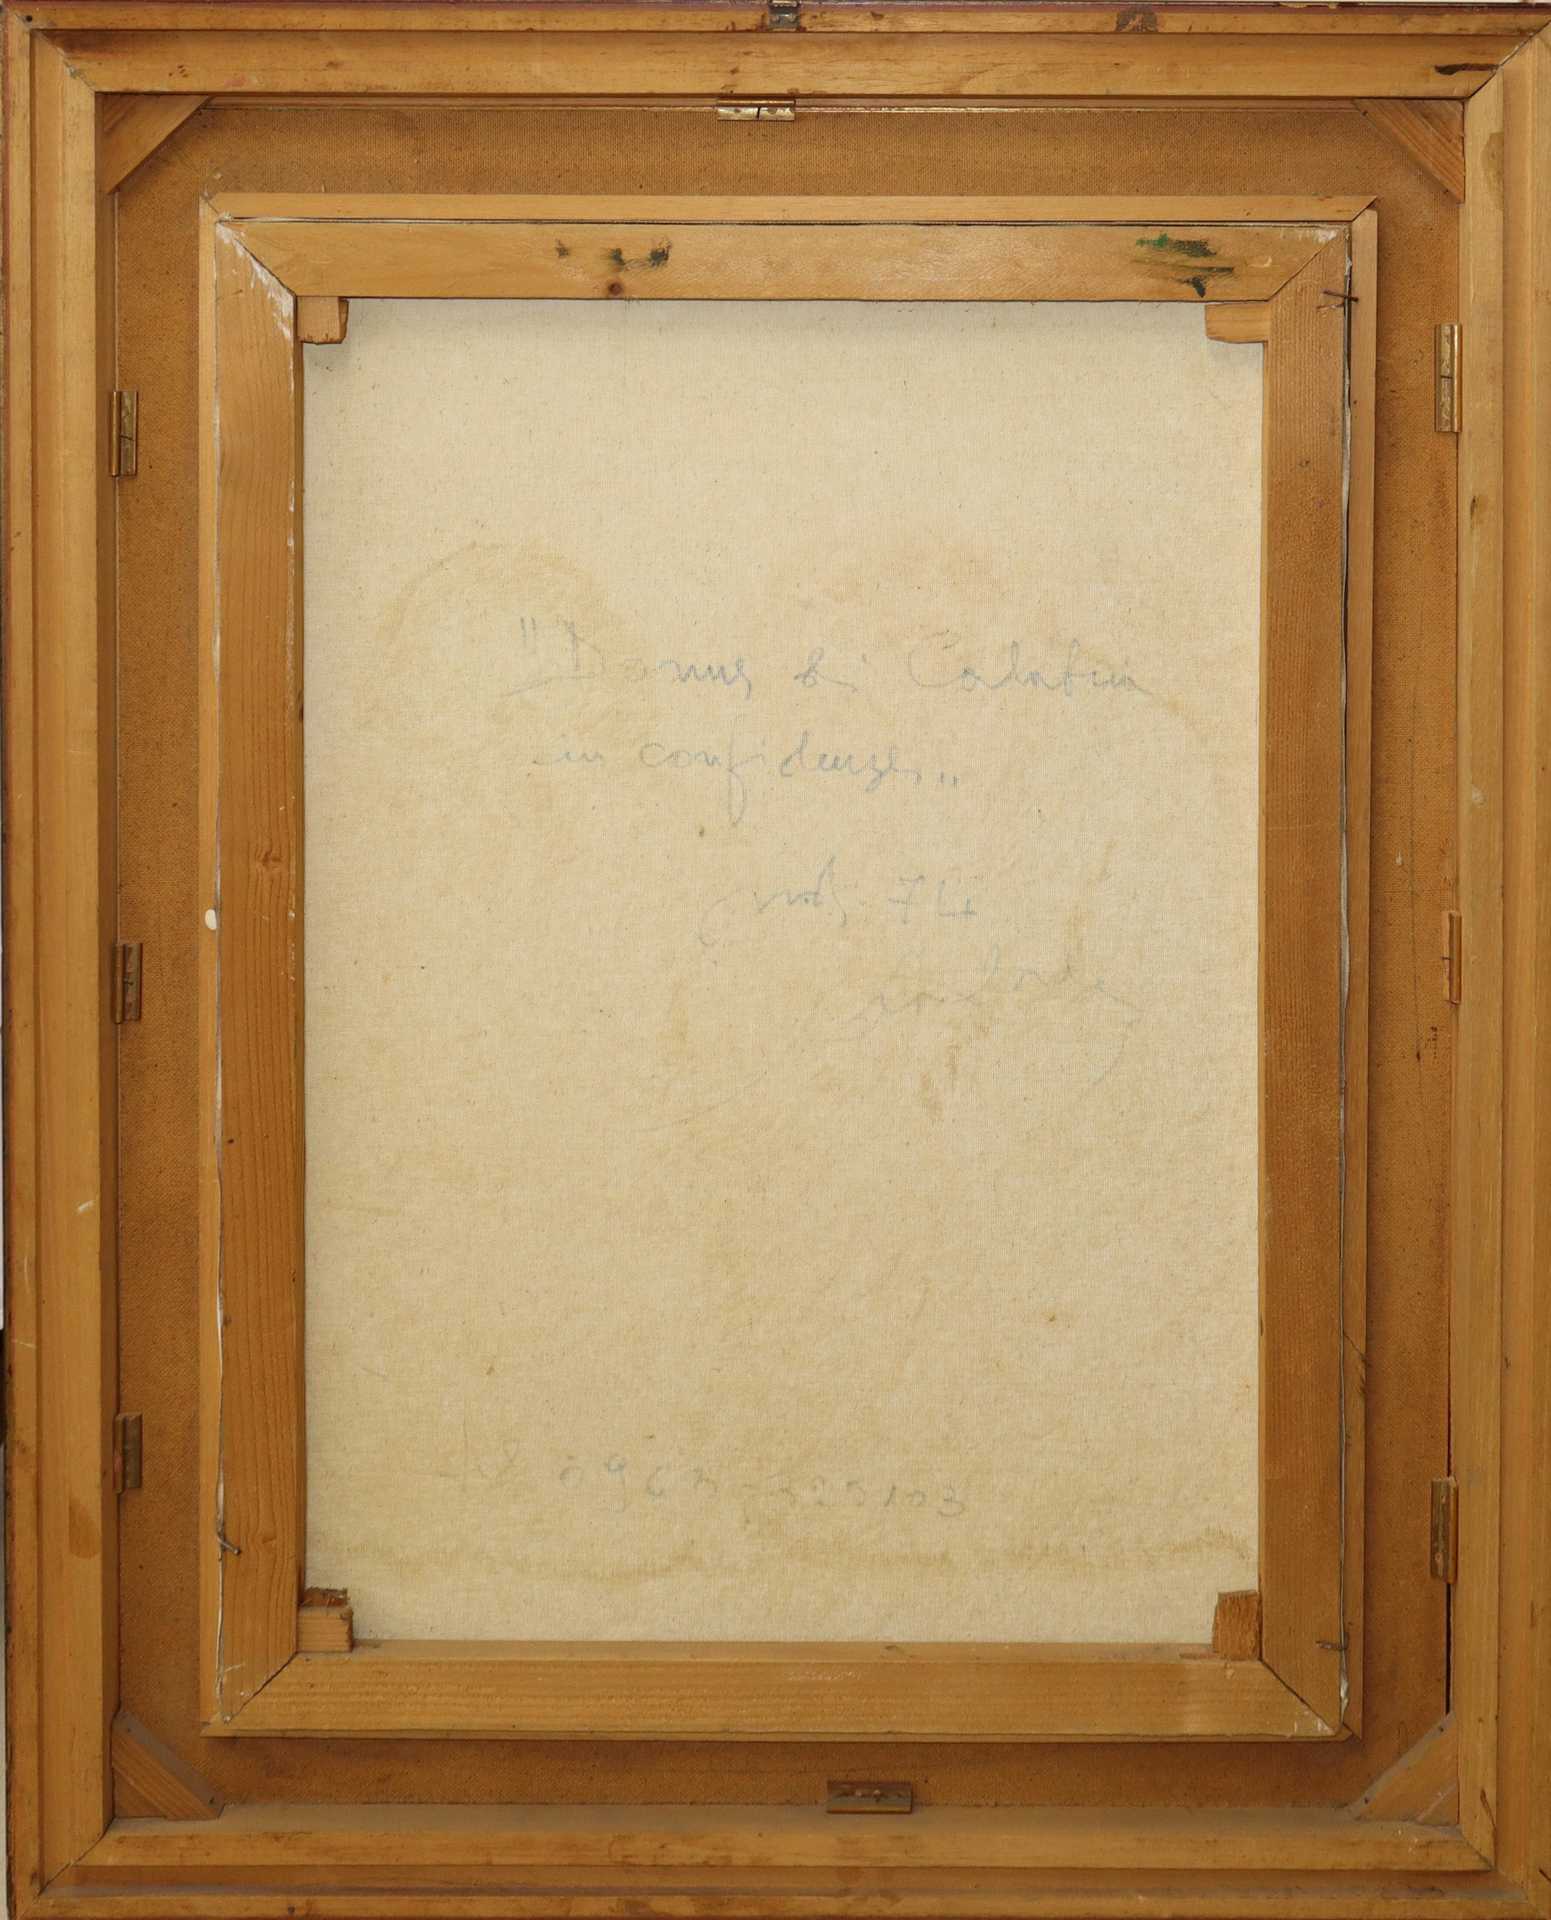 "Donne di Calabria
in confidenza"
74
0963 325103